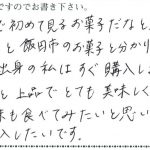 ですのでお書き下さい。
で初めて見るお菓子だなと、
と飯田市のお菓子と分かり
出身の私はすぐ購入しま
と上品でとても美味しく
味も食べてみたいと思い
入したいです。